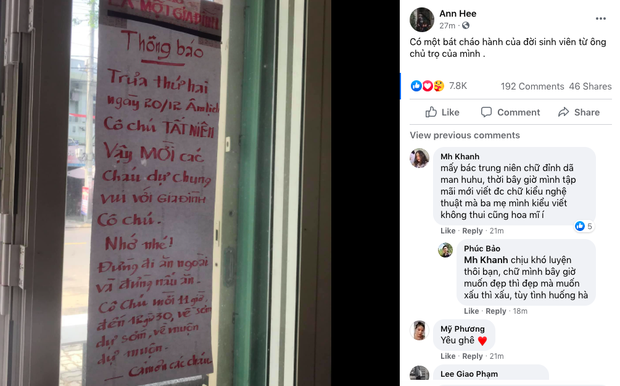 LÀ MỘT GIA ĐÌNH
Thông báo
Trưa thứ hai
ngày 20/12 Âm lịch
Cô chú TẤT NIÊN
Vậy MỜI các
Cháu dự chung
vui với GIA ĐÌNH
Cô chú.
Nhớ nhé!
Đừng đi ăn ngoài
và đừng nấu ăn.
Cô Chú mời 11 giờ
đến 18g30, về sớm
dự sớm, về muộn
dự muộn.
Cảm ơn các cháu
Ann Hee
27m
Có một bát cháo hành của đời sinh viên từ ông
chủ trọ của mình .
7.8K
192 Comments 46 Shares
Like Comment Share
View previous comments
Mh Khanh
mấy bác trung niên chữ đỉnh dã
man huhu, thời bây giờ mình tập
mãi mới viết đc chữ kiểu nghệ
thuật mà ba mẹ mình kiểu viết
không thui cũng hoa mĩ í
5
Like · Reply · 21m
Phúc Bảo
Mh Khanh chịu khó luyện
thôi bạn, chữ mình bây giờ
muốn đẹp thì đẹp mà muốn
xấu thì xấu, tùy tình huống hà
Like · Reply · 18m
Mỹ Phương
Yêu ghê
Like · Reply · 21m
Lee Giao Phạm